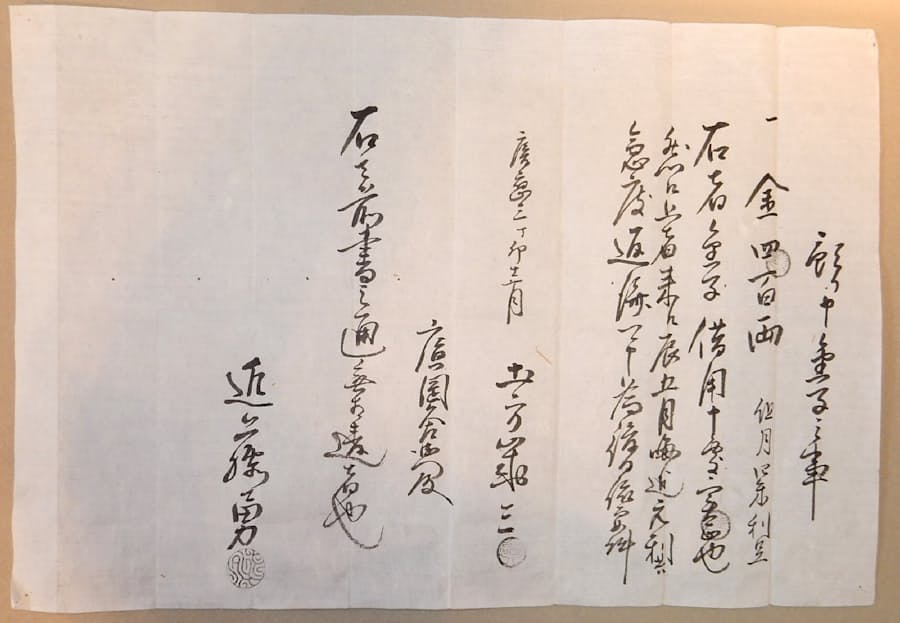 預り申金子之事
一 金四百両 但月 朱利足
右者金子借用申処実正也
然ル上者来ル辰五月晦迄元利共
急度返済可申為後日依如件
慶応三丁卯十二月 土方歳三
殿
右之前書之通無相違者也
近藤勇